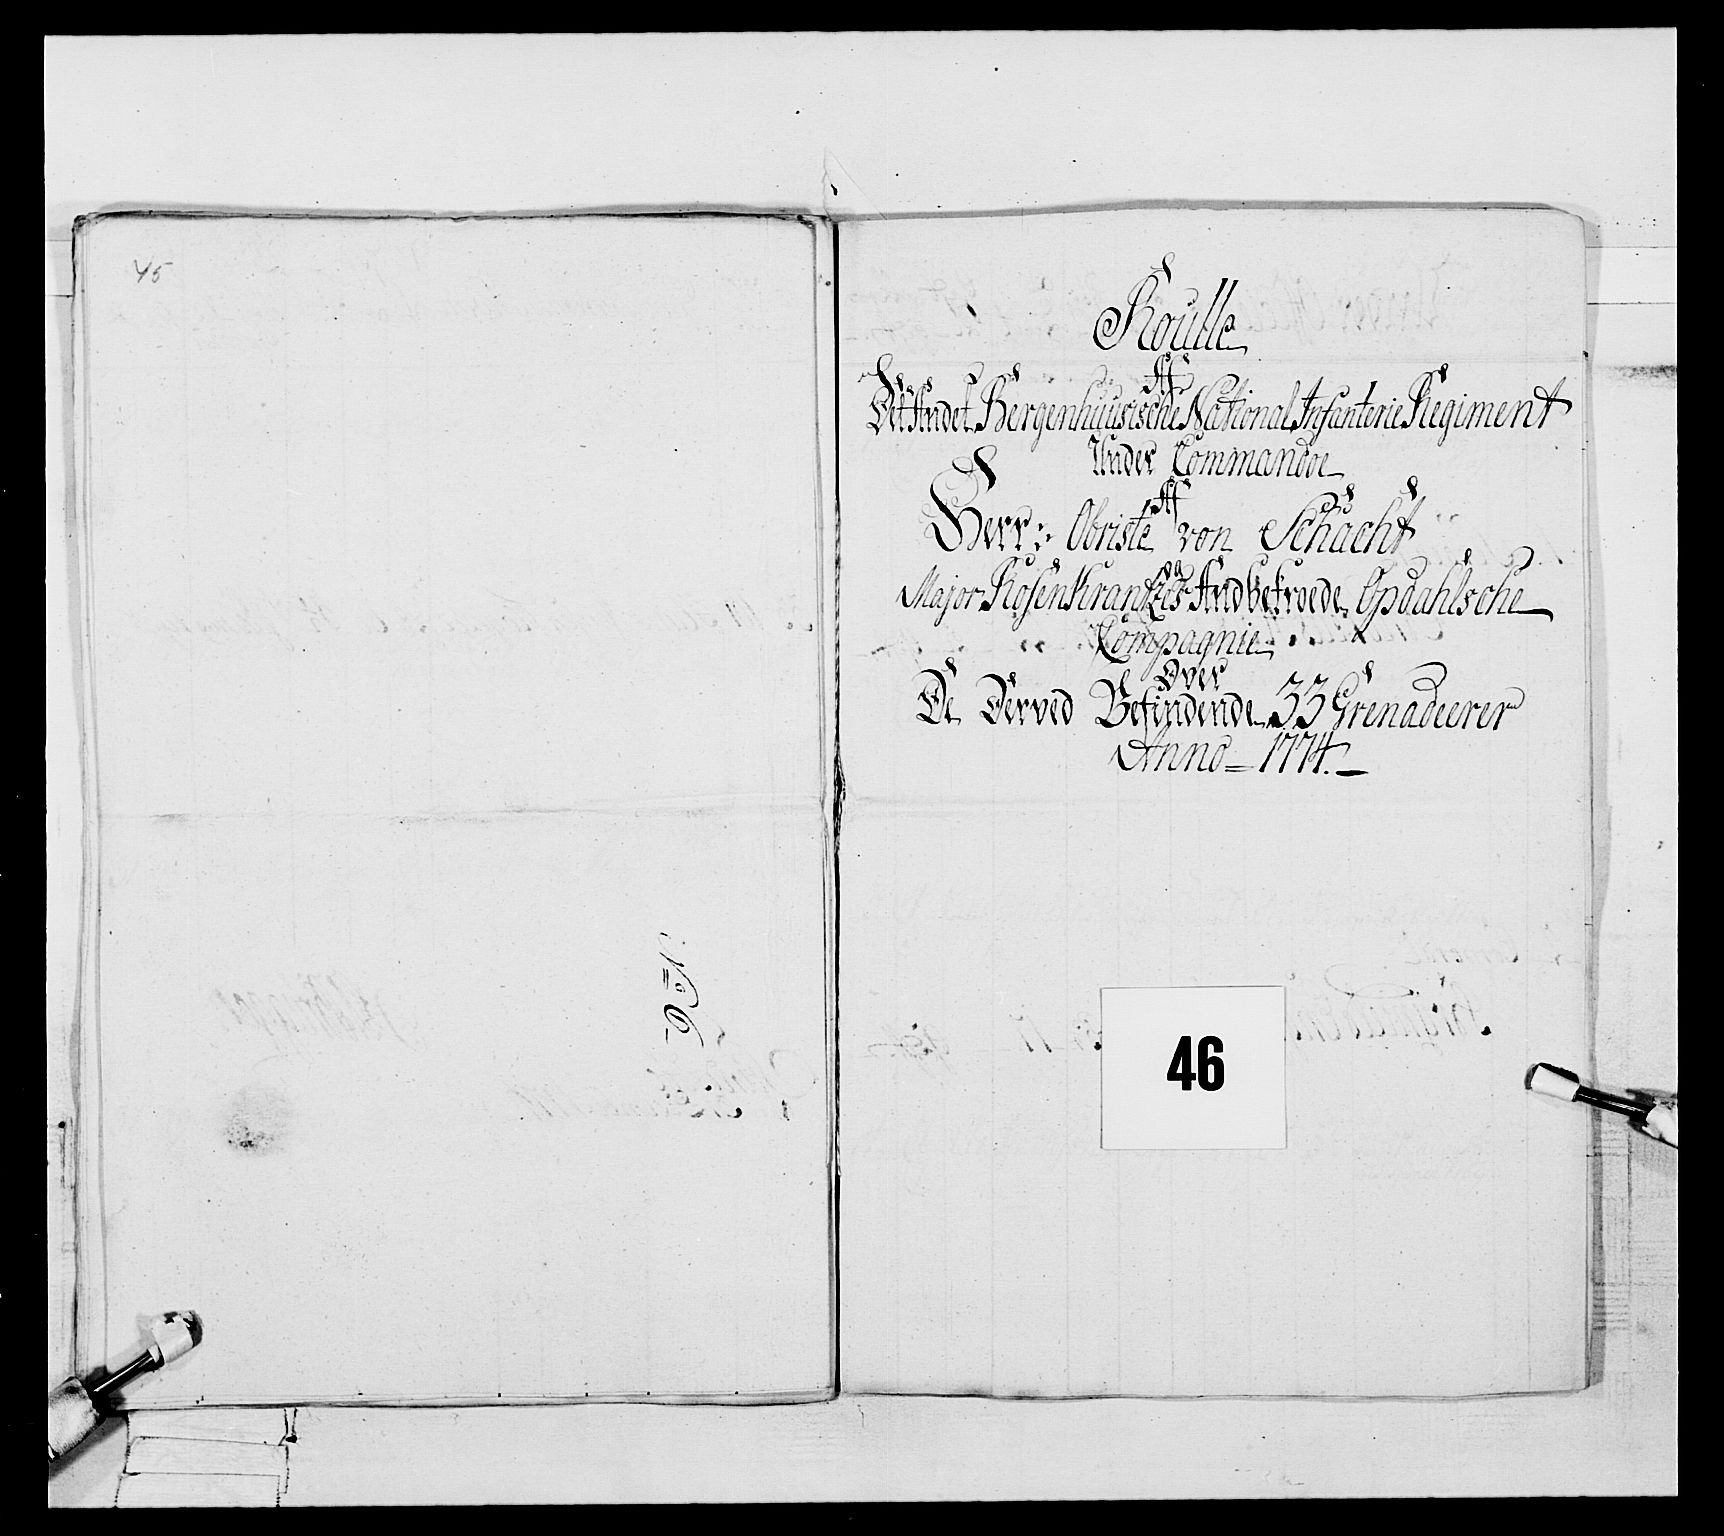 45
No 6
Roulle
Af
Det Andet Bergenhuusische National Infanterie Regiment
Under Commandoe
Af
Herr: Obriste von Schacht
og
Major Rosenkrantzes Andbetroede Opdahlsche
Compagnie
Over
De Derved Befindende 33 Grenadeerer
Anno = 1774.
46